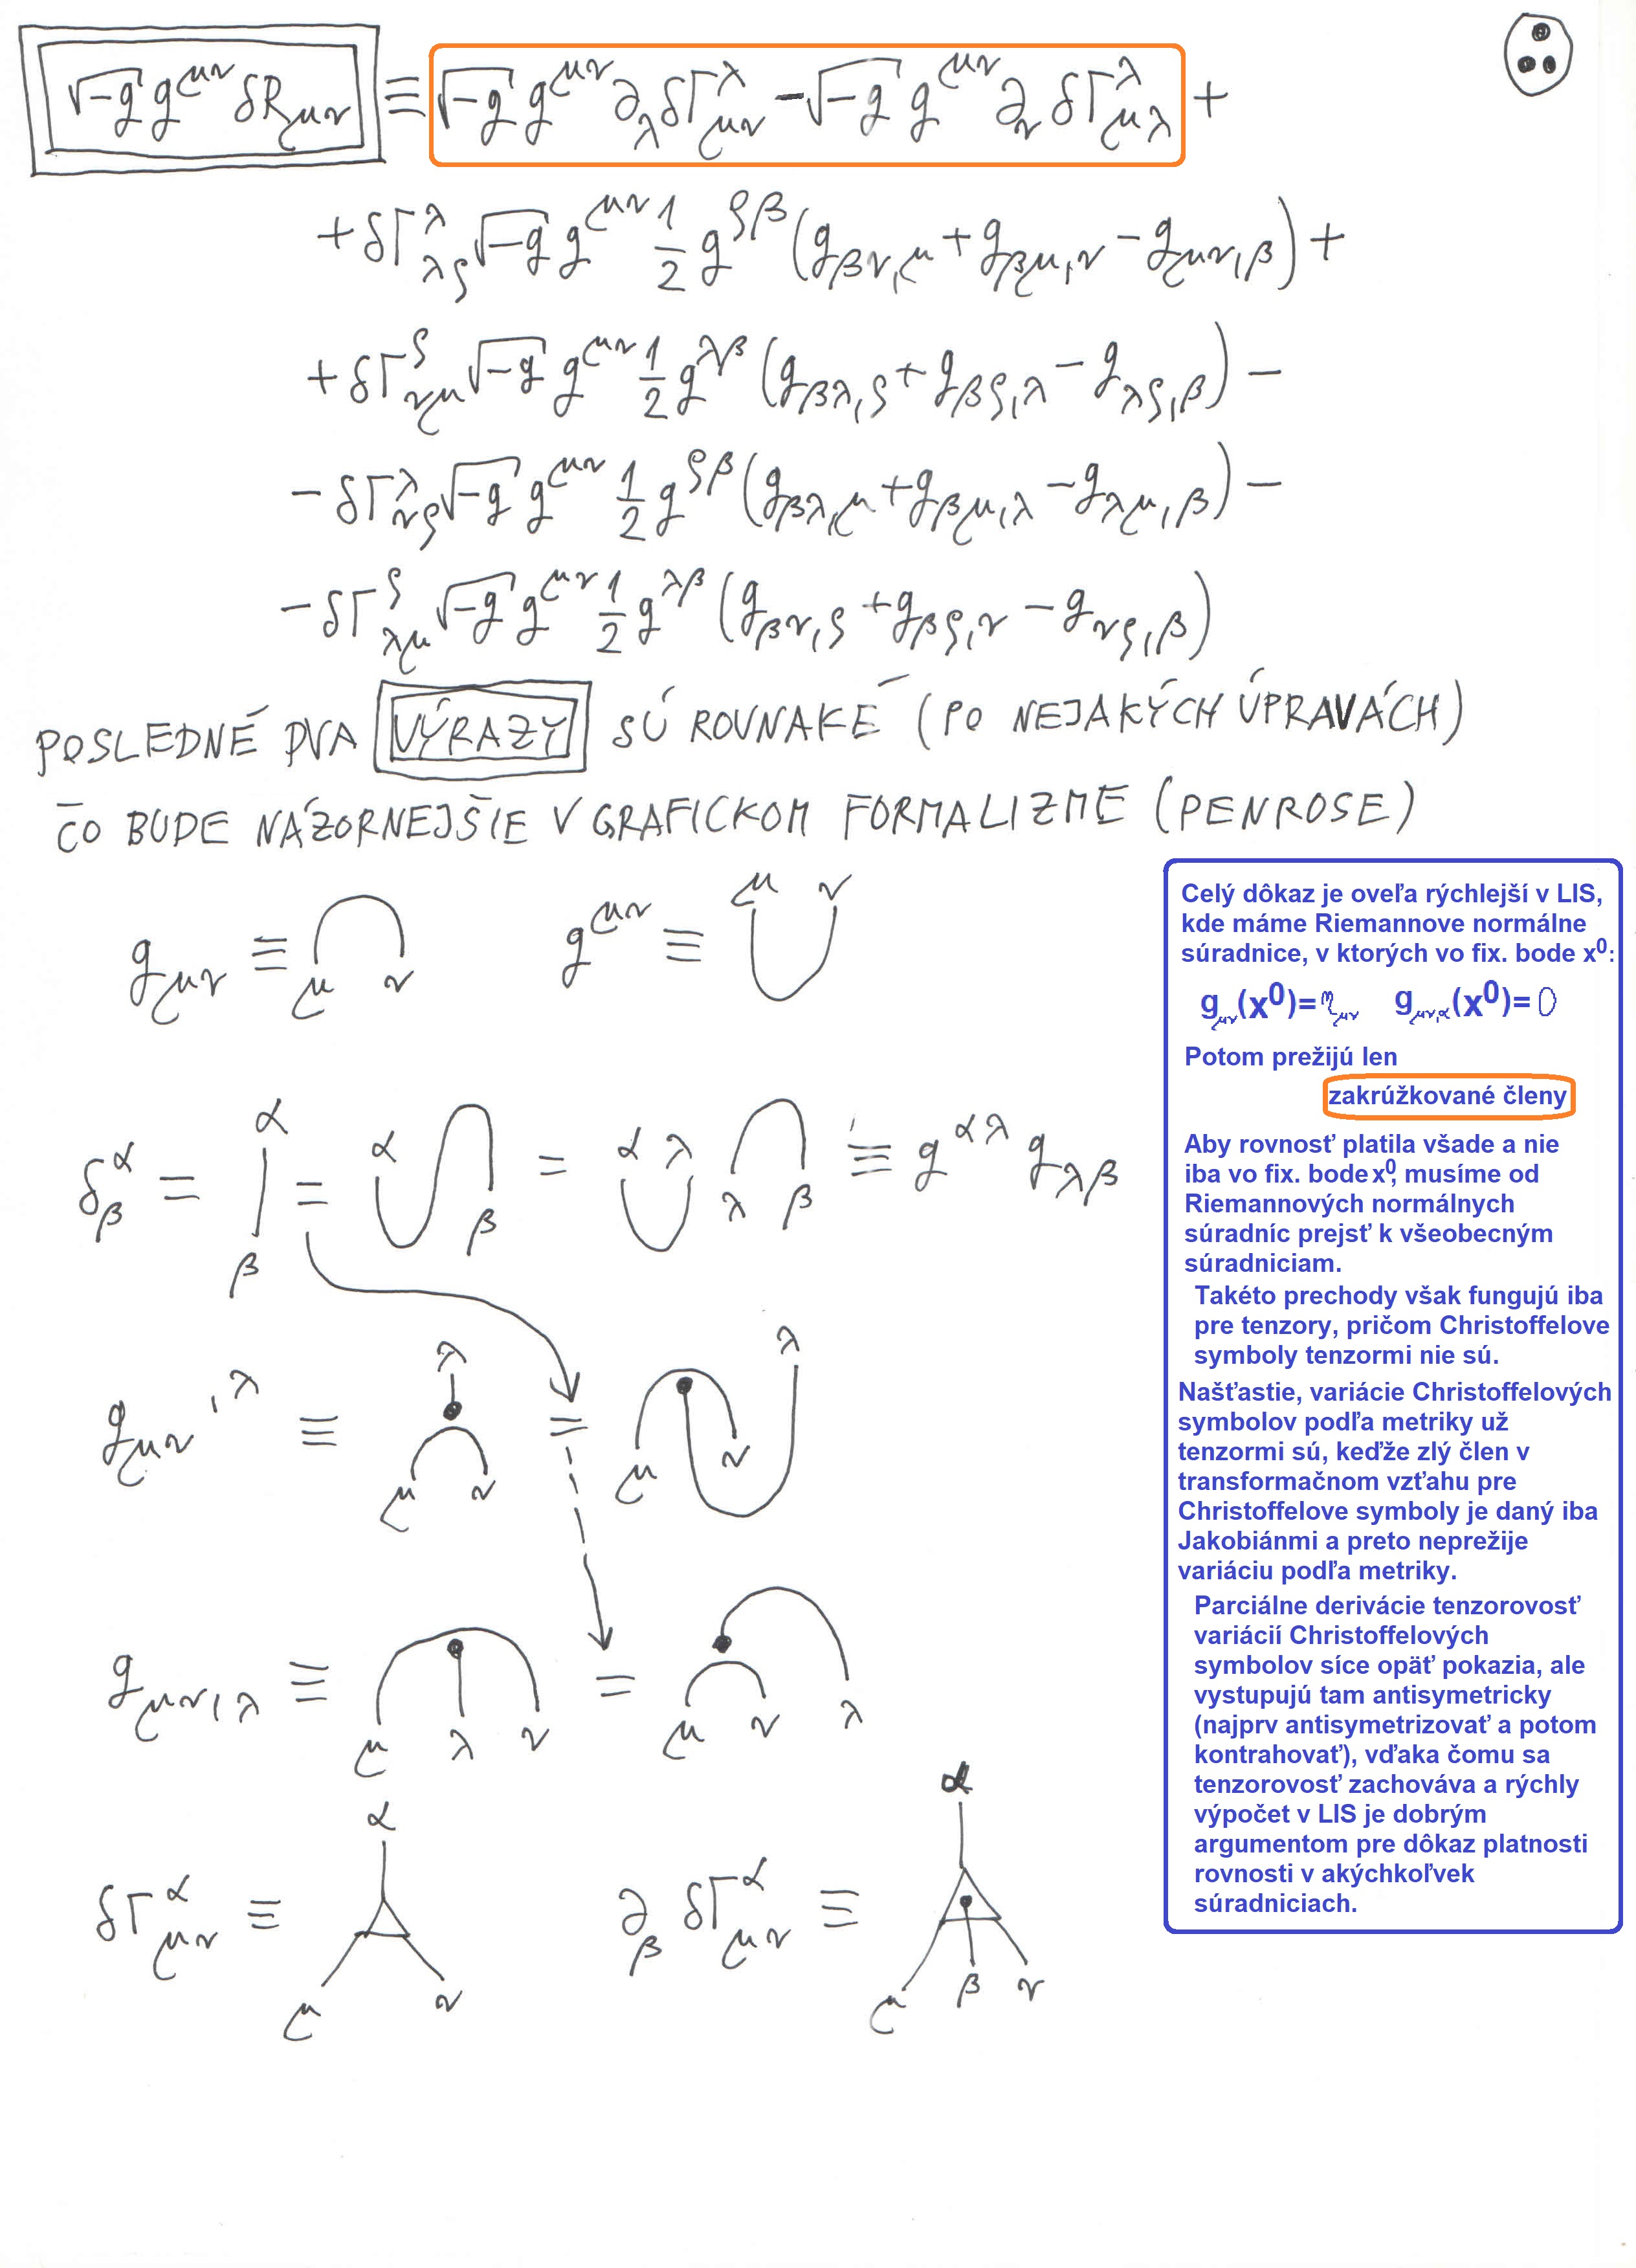 √-g g^{μν} δR_{μν} ≡ √-g g^{μν} ∂_λ δΓ^λ_{μν} - √-g g^{μν} ∂_ν δΓ^λ_{μλ} +
+ δΓ^λ_{λρ} √-g g^{μν} 1/2 g^{ρβ} (g_{βν,μ} + g_{βμ,ν} - g_{μν,β}) +
+ δΓ^ρ_{νμ} √-g g^{μν} 1/2 g^{λβ} (g_{βλ,ρ} + g_{βρ,λ} - g_{λρ,β}) -
- δΓ^λ_{νρ} √-g g^{μν} 1/2 g^{ρβ} (g_{βλ,μ} + g_{βμ,λ} - g_{λμ,β}) -
- δΓ^ρ_{λμ} √-g g^{μν} 1/2 g^{λβ} (g_{βν,ρ} + g_{βρ,ν} - g_{νρ,β})
POSLEDNÉ DVA VÝRAZY SÚ ROVNAKÉ (PO NEJAKÝCH ÚPRAVÁCH)
ČO BUDE NÁZORNEJŠIE V GRAFICKOM FORMALIZME (PENROSE)
g_{μν} ≡ μ ν g^{μν} ≡ μ ν
δ^α_β = α β = α β = α λ λ β ≡ g^{αλ} g_{λβ}
g_{μν}^{,λ} ≡ λ μ ν = μ ν λ
g_{μν,λ} ≡ μ λ ν = μ ν λ
δΓ^α_{μν} ≡ α μ ν ∂_β δΓ^α_{μν} ≡ α μ β ν
Celý dôkaz je oveľa rýchlejší v LIS,
kde máme Riemannove normálne
súradnice, v ktorých vo fix. bode x^0:
g_{μν}(x^0)=η_{μν} g_{μν,α}(x^0)=0
Potom prežijú len
zakrúžkované členy
Aby rovnosť platila všade a nie
iba vo fix. bode x^0, musíme od
Riemannových normálnych
súradníc prejsť k všeobecným
súradniciam.
Takéto prechody však fungujú iba
pre tenzory, pričom Christoffelove
symboly tenzormi nie sú.
Našťastie, variácie Christoffelových
symbolov podľa metriky už
tenzormi sú, keďže zlý člen v
transformačnom vzťahu pre
Christoffelove symboly je daný iba
Jakobiánmi a preto neprežije
variáciu podľa metriky.
Parciálne derivácie tenzorovosť
variácií Christoffelových
symbolov síce opäť pokazia, ale
vystupujú tam antisymetricky
(najprv antisymetrizovať a potom
kontrahovať), vďaka čomu sa
tenzorovosť zachováva a rýchly
výpočet v LIS je dobrým
argumentom pre dôkaz platnosti
rovnosti v akýchkoľvek
súradniciach.